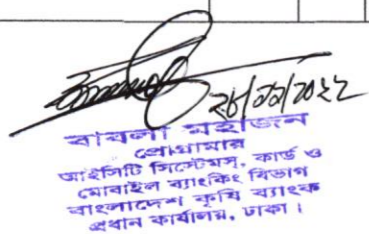 ২৮/১১/২০২২
বাবলা মহাজন
প্রোগ্রামার
আইসিটি সিস্টেমস, কার্ড ও
মোবাইল ব্যাংকিং বিভাগ
বাংলাদেশ কৃষি ব্যাংক
প্রধান কার্যালয়, ঢাকা।